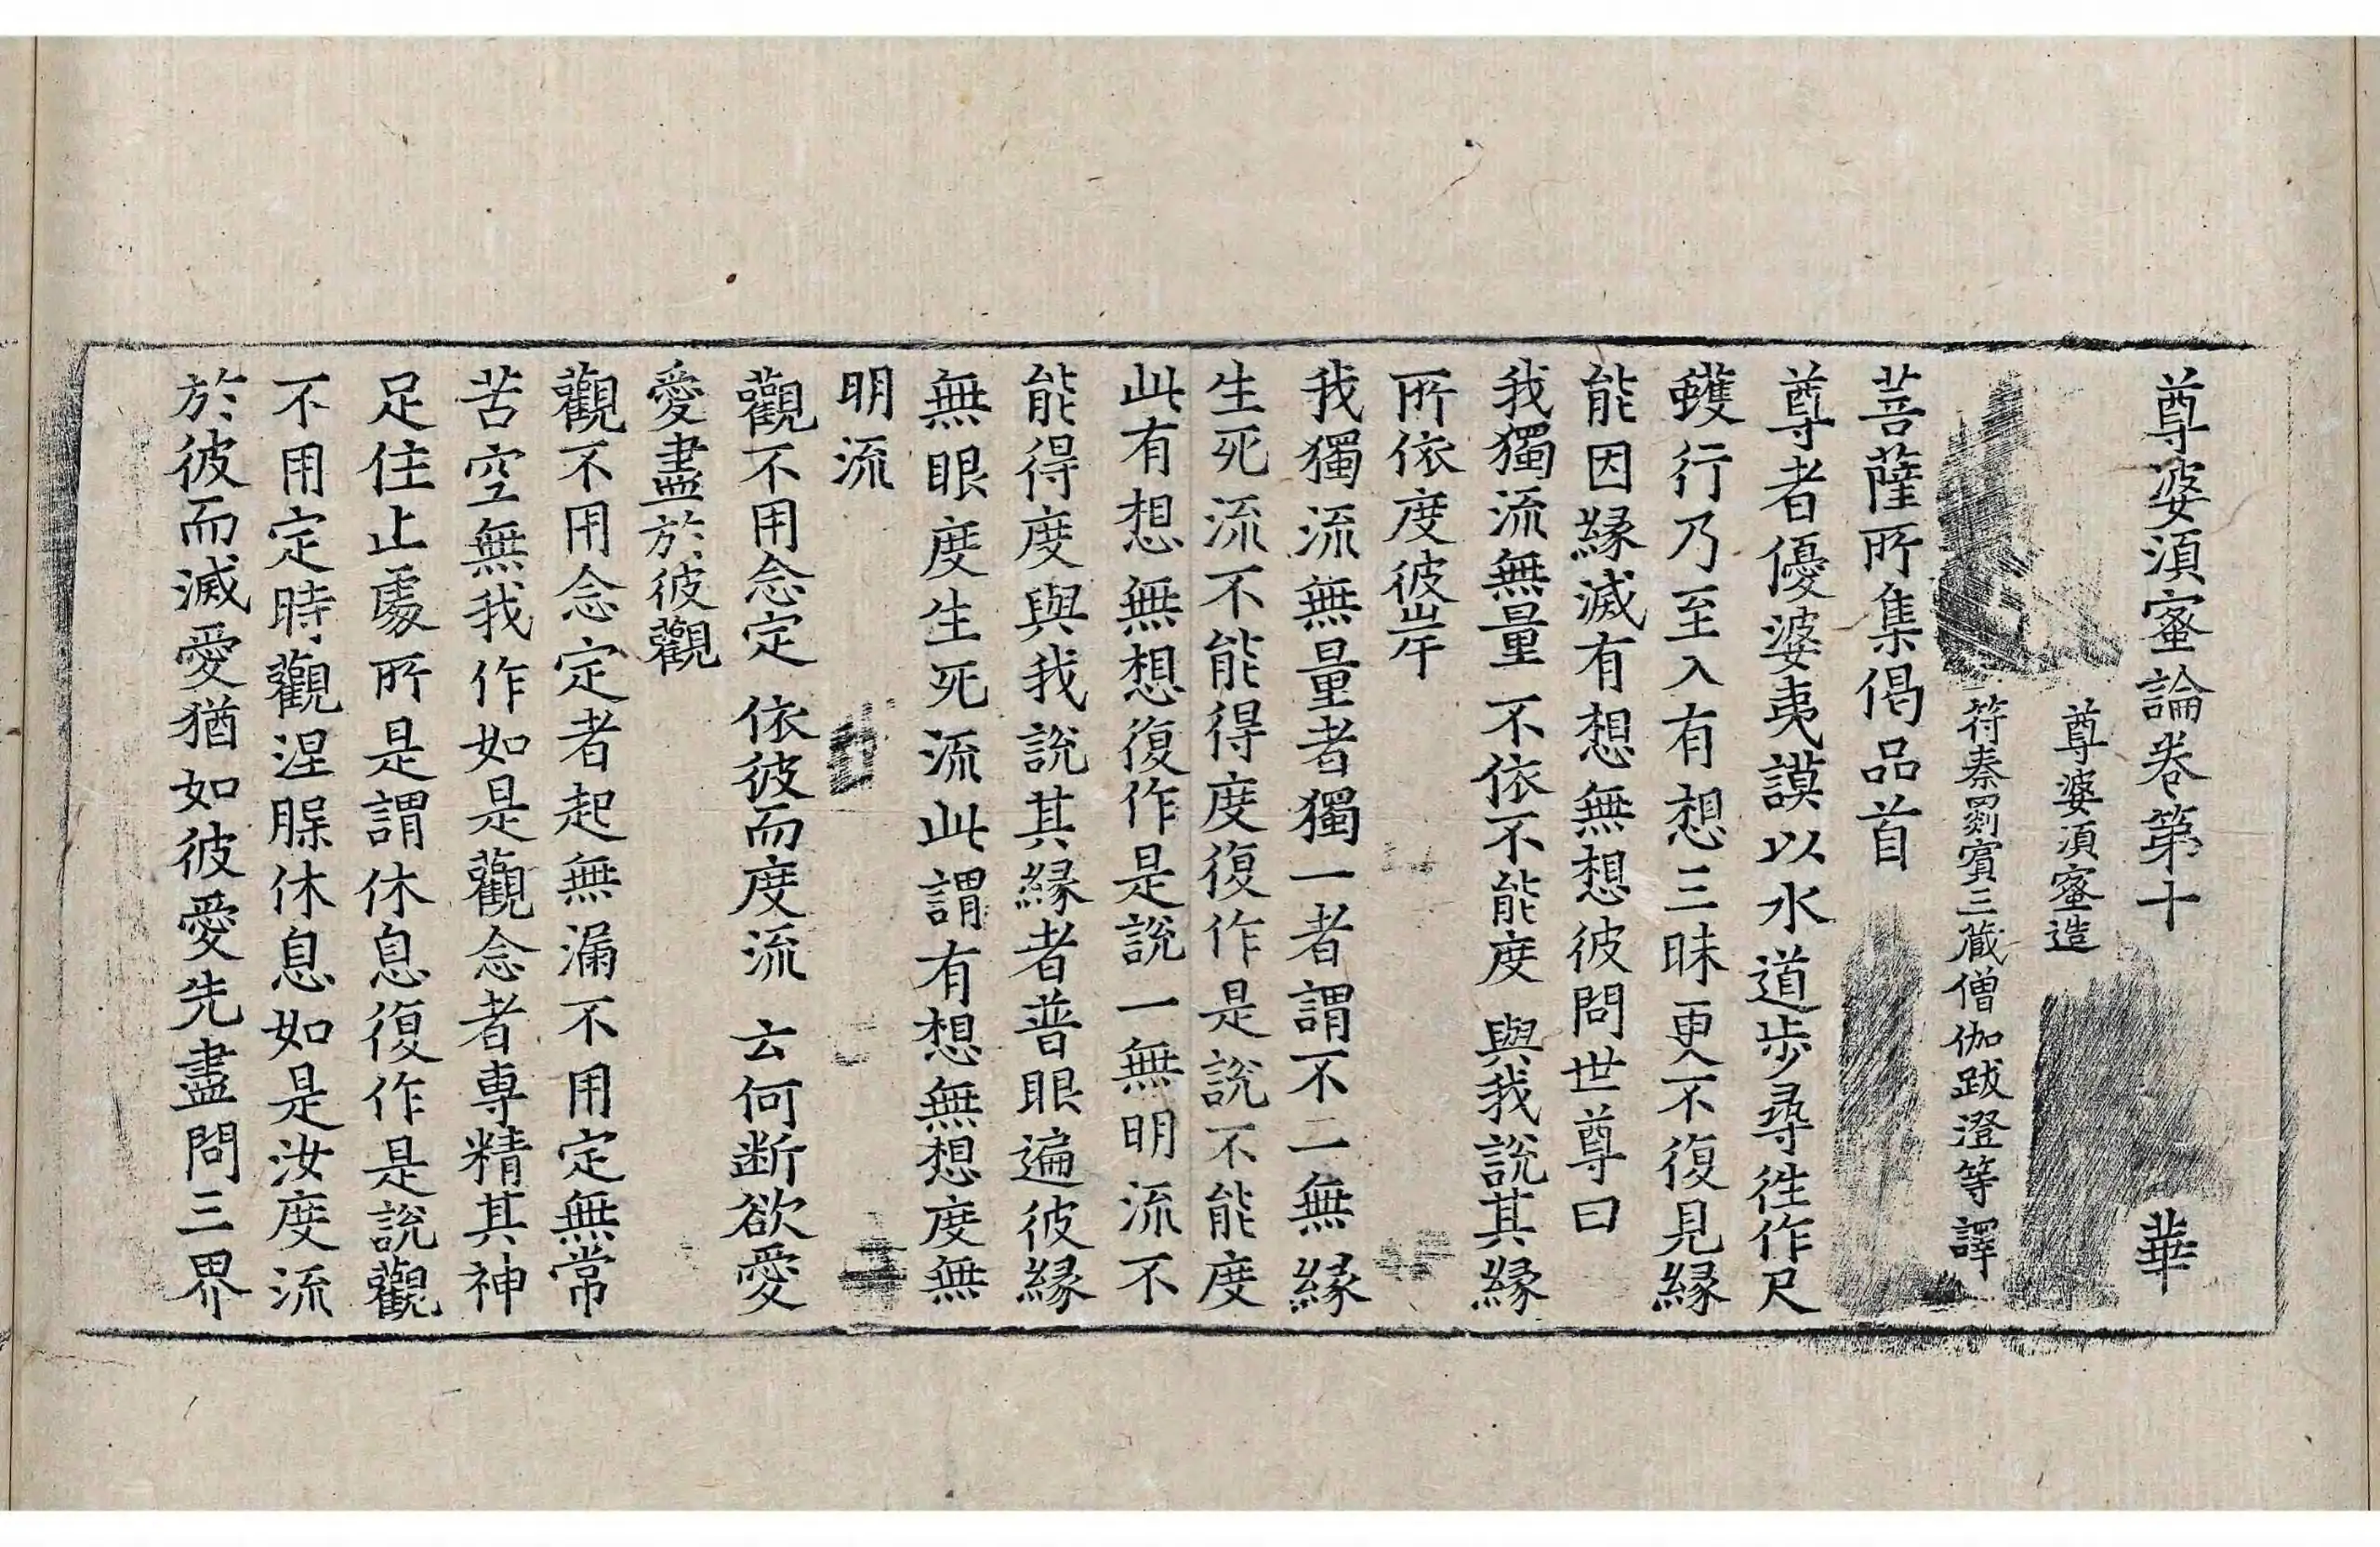 尊婆須蜜論卷第十 華
尊婆須蜜造
符秦罽賓三藏僧伽跋澄等譯
菩薩所集偈品首
尊者優婆夷謨以水道步尋徃作尺
蠖行乃至入有想三昧更不復見緣
能因緣滅有想無想彼問世尊曰
我獨流無量 不依不能度 與我說其緣
所依度彼岸
我獨流無量者獨一者謂不二無緣
生死流不能得度復作是說不能度
此有想無想復作是說一無明流不
能得度與我說其緣者普眼遍彼緣
無眼度生死流此謂有想無想度無
明流
觀不用念定 依彼而度流 云何斷欲愛
愛盡於彼觀
觀不用念定者起無漏不用定無常
苦空無我作如是觀念者專精其神
足住止處所是謂休息復作是說觀
不用定時觀涅脲休息如是汝度流
於彼而滅愛猶如彼愛先盡問三界